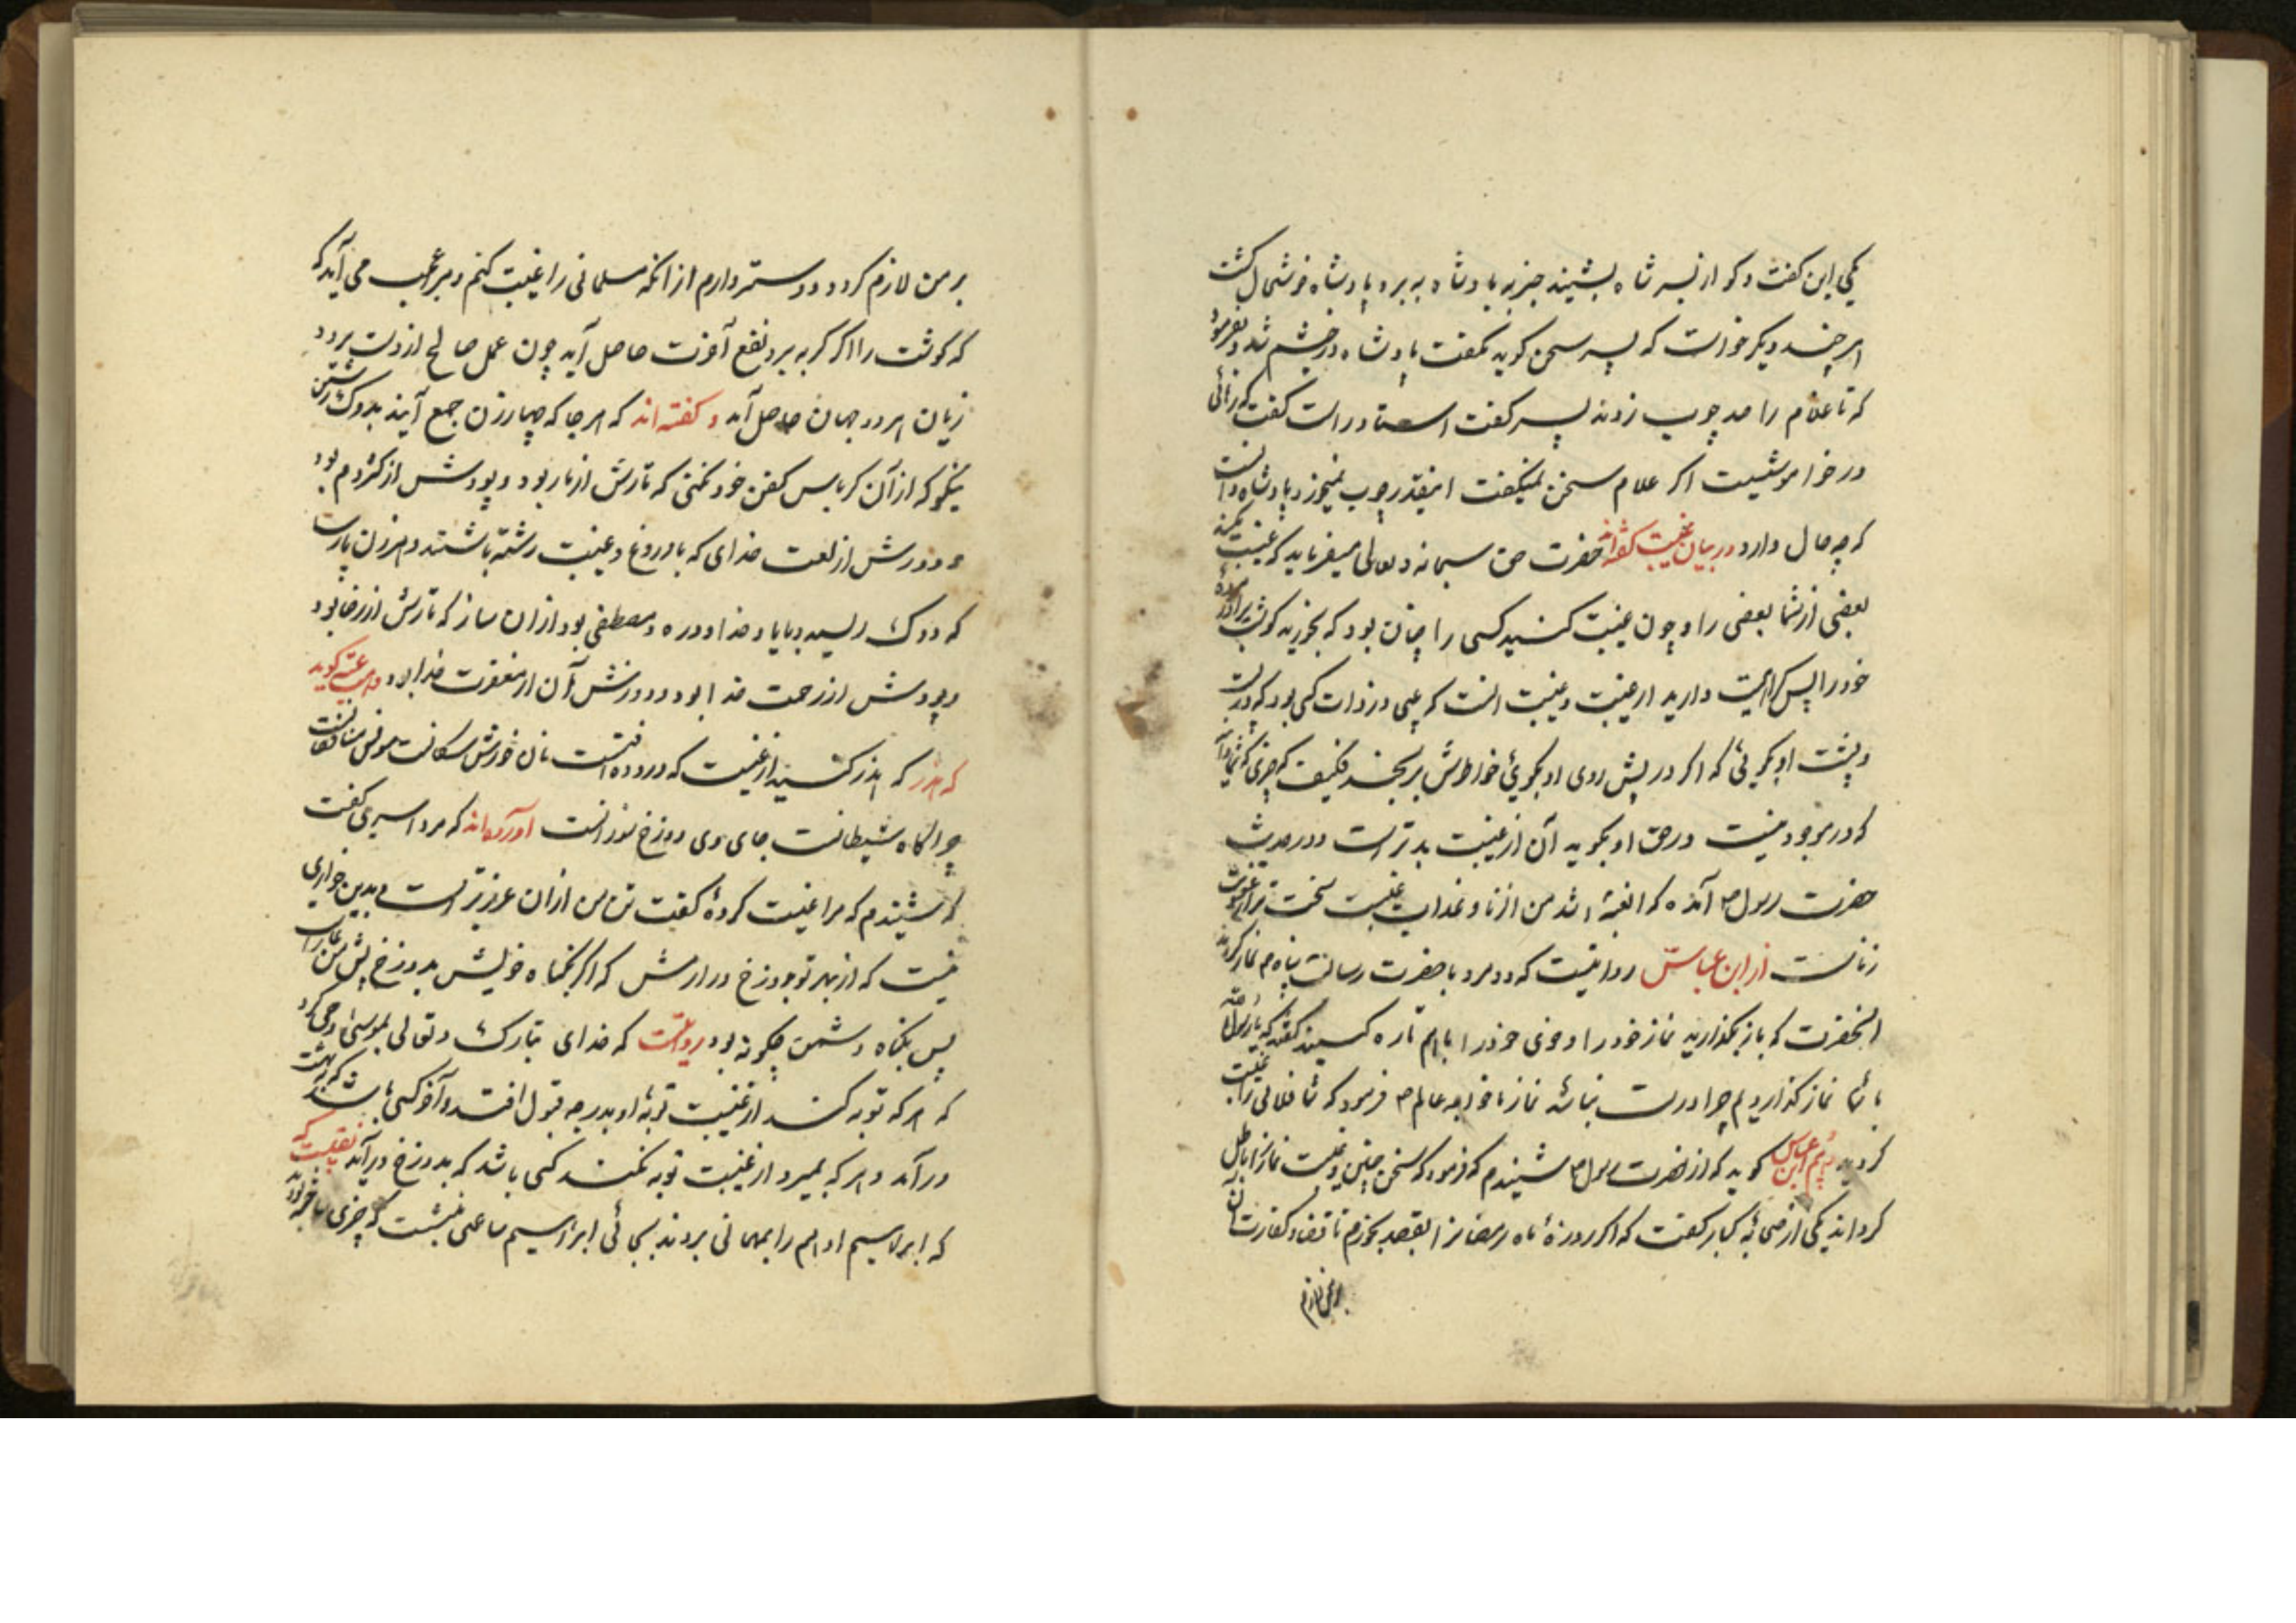 یکی این گفت و کو از پسر شاه بشیند خبر به بادشاه ببرد پادشاه خوشحال گشت
هر چند دیگر خواست که پسر سخن گوید نگفت پادشاه در خشم شد و بفرمود
که تا غلام را صد چوب زدند پسر گفت استاد راست گفت که رهائی
در خواموشیست اگر غلام سخن نمیگفت اینقدر چوب نمیخورد پادشاه دانست
که چه حال دارد در بیان غیبت گفته‌اند حضرت حق سبحانه و تعالی میفرماید که غیبت مکنید
بعضی از شما بعضی را و چون غیبت کنید کسی را چنان بود که بخورید گوشت برادر مرده
خود را پس کراهیت دارید از غیبت و غیبت انست که عیبی در ذات کسی بود که
و پشت او بگوئی که اگر در پیش روی او بگوئی خواطرش برنجد فکیف که چیزی
که در موجود نیست در حق او بگوید آن از غیبت بدتر است و در حدیث
حضرت رسول م آمده که الغیبة اشد من الزنا و عذاب غیبت سخت تر از عقوبت
زناست از ابن عباس روایتست که دو مرد با حضرت رسالت پناه م نماز کردند
انحضرت که باز بگذارید نماز خود را و وضوی خود را باهم تازه کنید گفتند که یا رسول الله
با شما نماز گذاردیم چرا درست نباشد نماز ما خواجه عالم م فرمود که شما فلانی را غیبت
کردید هم ابن عباس گوید که از حضرت رسول م شنیدم که فرمود که سخن چینی و غیبت نماز را باطل
گرداند یکی از صحابهٔ کبار گفت که اگر روزهٔ ماه رمضانرا بقصد بخورم تا قضا و کفارت آن
بر من لازم
بر من لازم گردد دوستر دارم از انکه مسلمانی را غیبت کنم و مرا عجب می آید که
که گوشت را اگر گربه برد نفع آخرت حاصل آید چون عمل صالح از دست برود
زیان هر دو جهان حاصل آید و گفته‌اند که هر جا که چهار زن جمع آیند بدوک رشتن
نیکو که از آن کرباس کفن خود نکنی که تارش از مار بود و پودش از کژدم بود
و دورش از لعنت خدای که با دروغ و غیبت رشته باشند و هر زن پارسا
که دوک ریسید و با یاد خدا و درود مصطفی بود از ان ساز که تارش از رضا بود
و پودش از رحمت خدا بود و دورش آن از مغفرت خدا بود گوید
که هذر که هذر کنید از غیبت که در دوده است نان خورش سگانست مونس منافقانست
چراگاه شیطانست جای وی دوزخ سوزانست آورده‌اند که مرد اسیری گفت
که شنیدم که مرا غیبت کردهٔ گفت تن من از ان عزیزتر است و بدین خواری
نیست که از بهر تو بدوزخ در ارمش که اگر بگناه خویش بدوزخ پیش من
پس بگناه دشمن چگونه بود روایتست که خدای تبارک و تعالی بموسی وحی کرد
که هر که توبه کند از غیبت توبهٔ او بدرجه قبول افتد و آخر کسی باشد که در بهشت
در آید و هر که بمیرد از غیبت توبه نکند کسی باشد که بدوزخ در آید نقلیست که
که ابراهیم ادهم را بمهمانی بردند بجائی ابراهیم ساعتی بنشست که چیزی